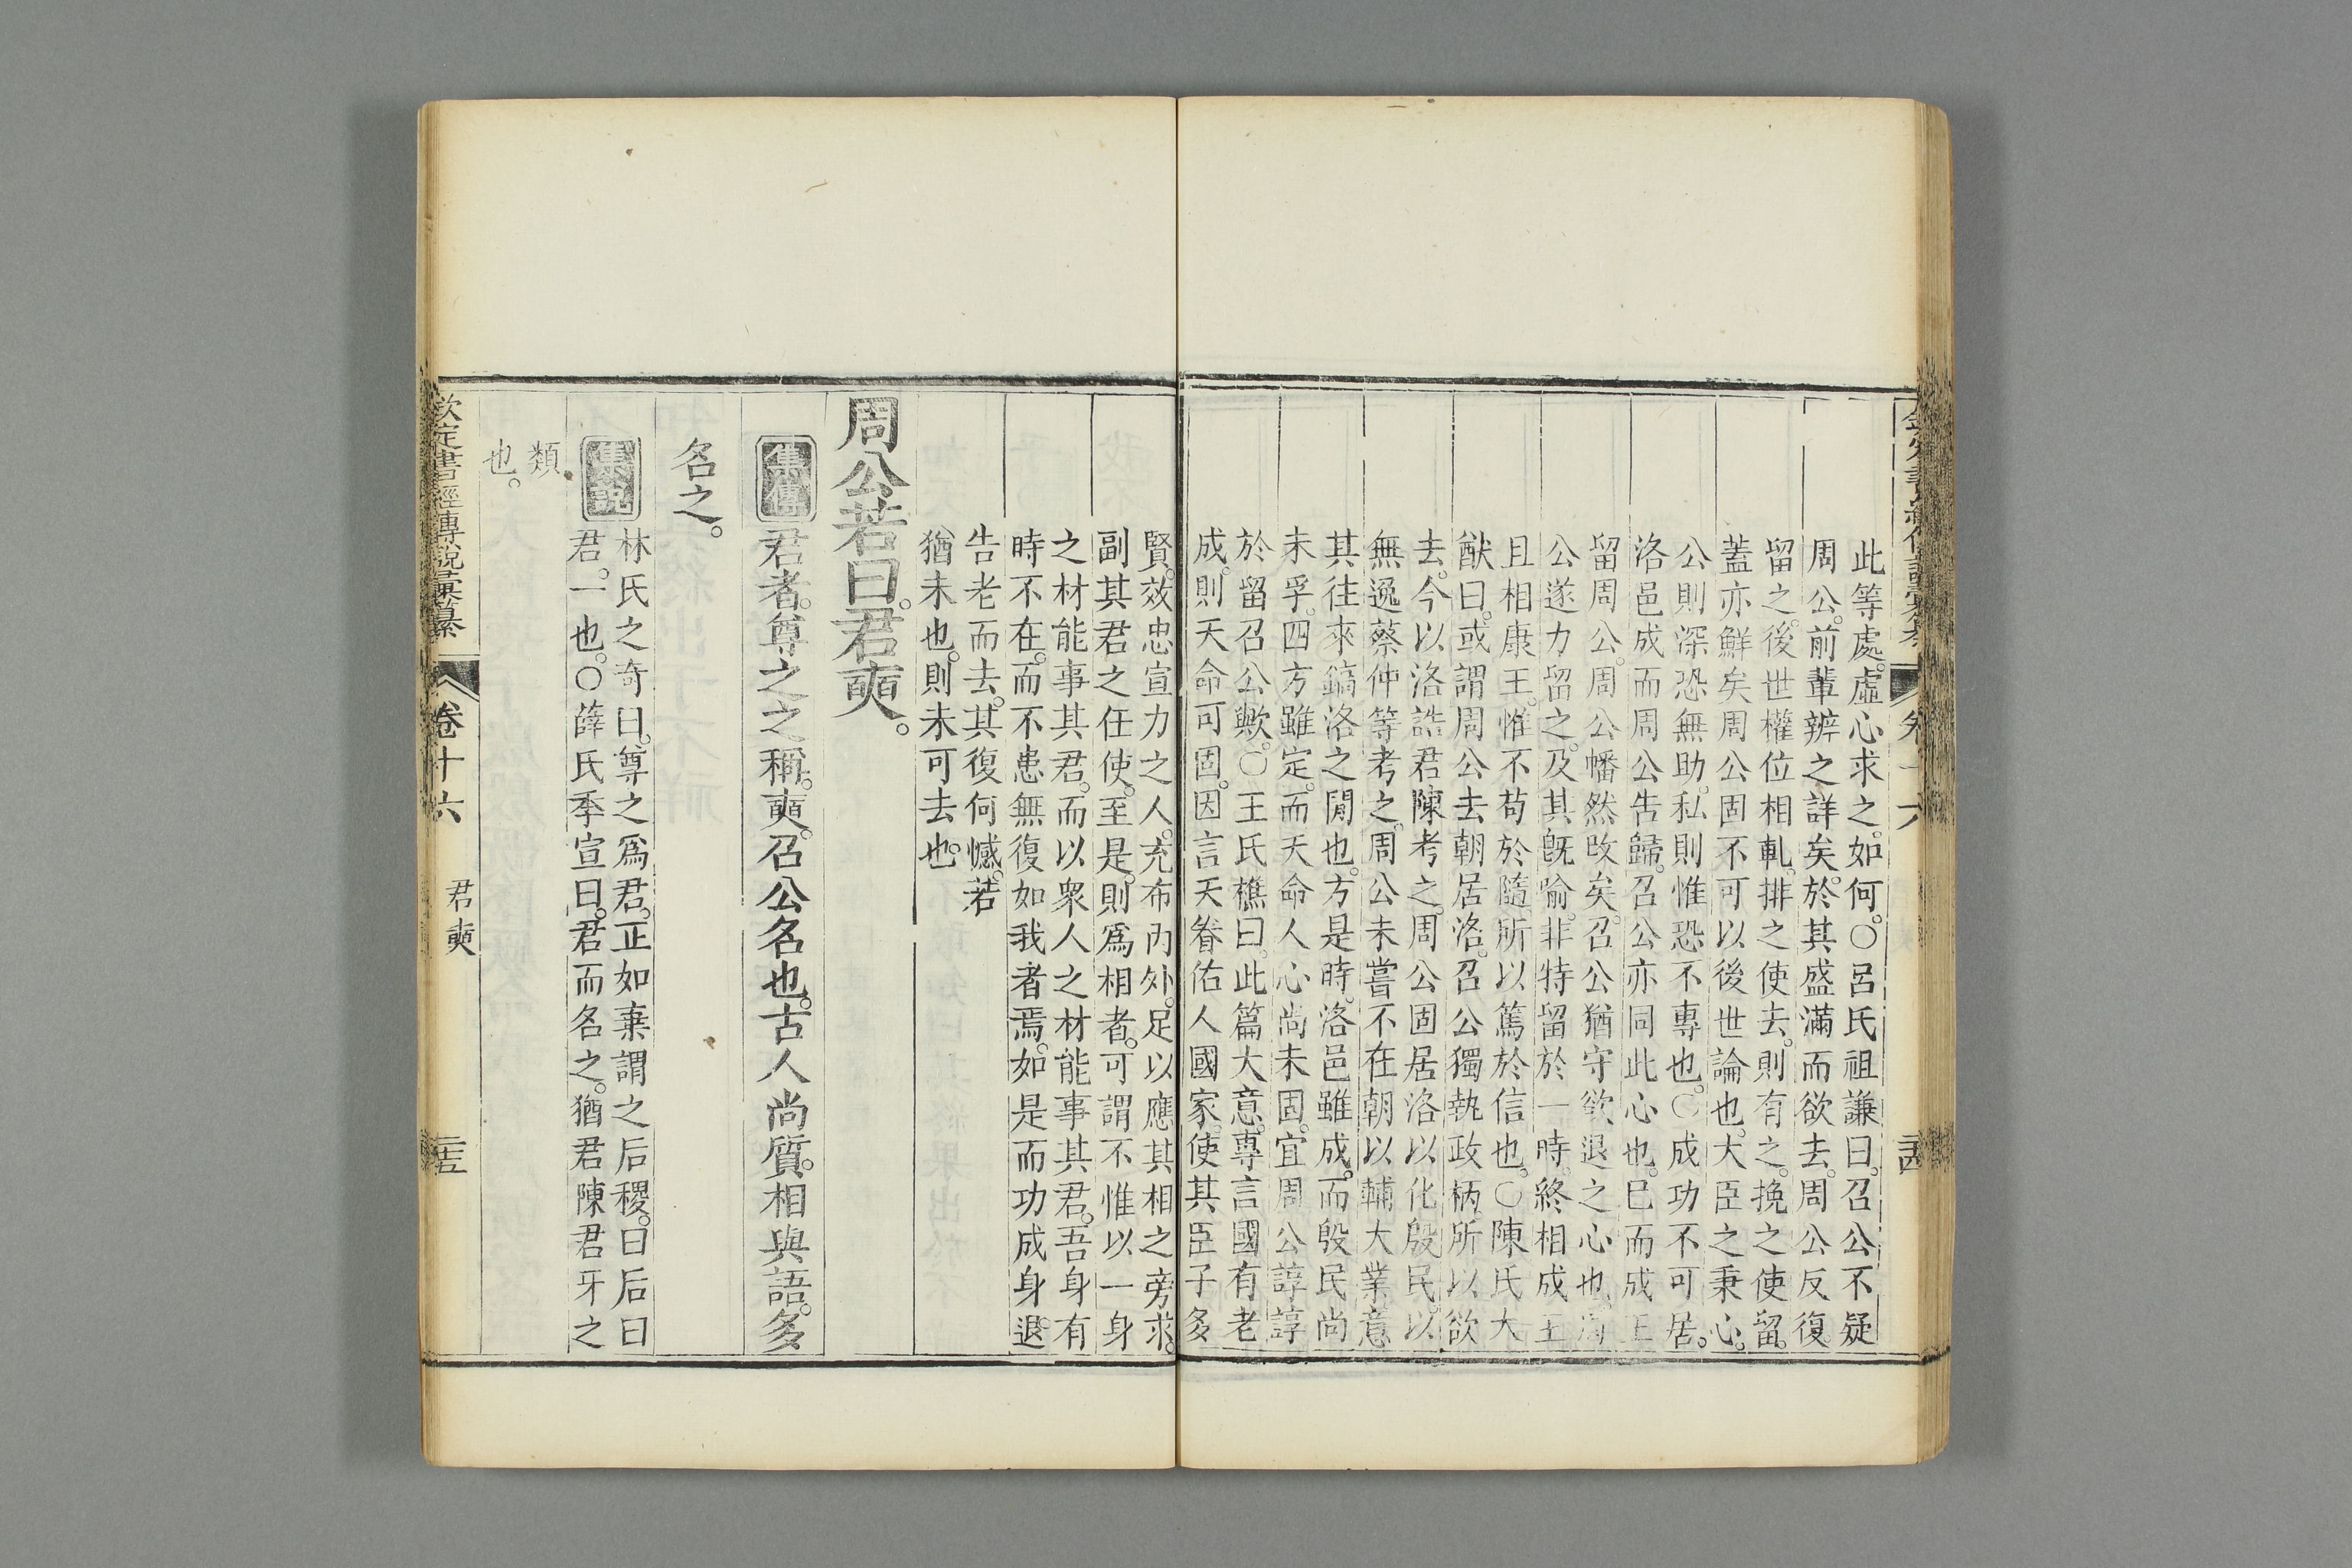 此等處。虛心求之。如何。○呂氏祖謙曰。召公不疑
周公。前輩辨之詳矣。於其盛滿而欲去。周公反復
留之。後世權位相軋。排之使去。則有之。挽之使留。
蓋亦鮮矣周公固不可以後世論也。大臣之秉心。
公則深恐無助。私則惟恐不專也。○成功不可居。
洛邑成而周公告歸。召公亦同此心也。已而成王
留周公。周公幡然改矣。召公猶守欲退之心也。周
公遂力留之。及其旣喻。非特留於一時。終相成王
且相康王。惟不苟於隨。所以篤於信也。○陳氏大
猷曰。或謂周公去朝居洛。召公獨執政柄。所以欲
去。今以洛誥君陳考之。周公固居洛以化殷民。以
無逸蔡仲等考之。周公未嘗不在朝以輔大業。意
其往來鎬洛之閒也。方是時。洛邑雖成。而殷民尚
未孚。四方雖定。而天命人心尚未固。宜周公諄諄
於留召公歟。○王氏樵曰。此篇大意。專言國有老
成。則天命可固。因言天眷佑人國家。使其臣子多
賢。效忠宣力之人。充布內外。足以應其相之旁求。
副其君之任使。至是。則爲相者。可謂不惟以一身
之材能事其君。而以衆人之材能事其君。吾身有
時不在。而不患無復如我者焉。如是而功成身退。
告老而去。其復何憾。若
猶未也。則未可去也。
周公若曰。君奭。
集傳 君者。尊之之稱。奭。召公名也。古人尚質。相與語。多
名之。
集說 林氏之奇曰。尊之爲君。正如棄謂之后稷。曰后曰
君。一也。○薛氏季宣曰。君而名之。猶君陳君牙之
類
也。
欽定書經傳說彙纂 卷十六 君奭 二十五